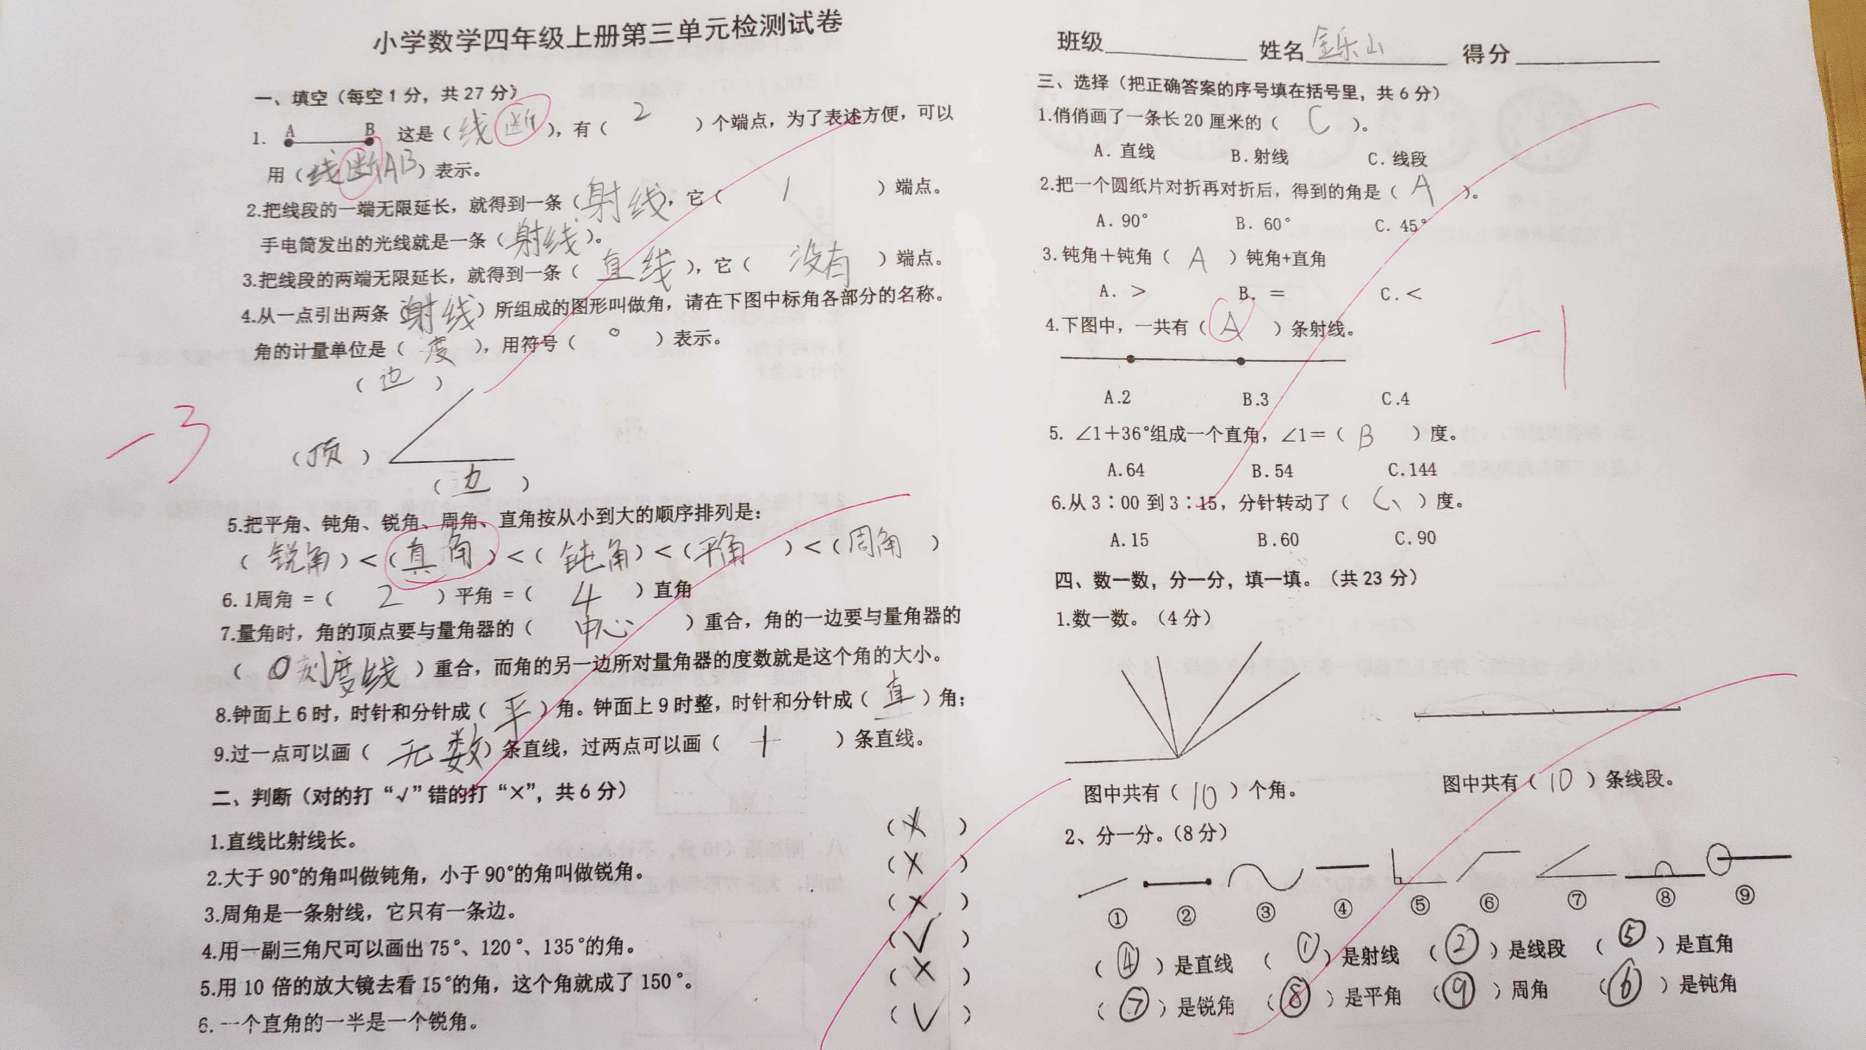 小学数学四年级上册第三单元检测试卷
一、填空（每空1分，共27分）
1. A B 这是（线断），有（2）个端点，为了表述方便，可以
用（线断AB）表示。
2.把线段的一端无限延长，就得到一条（射线，它（1）端点。
手电筒发出的光线就是一条（射线）。
3.把线段的两端无限延长，就得到一条（直线），它（没有）端点。
4.从一点引出两条 射线）所组成的图形叫做角，请在下图中标角各部分的名称。
角的计量单位是（度），用符号（°）表示。
（边）
（顶）
（边）
-3
5.把平角、钝角、锐角、周角、直角按从小到大的顺序排列是：
（锐角）＜（真角）＜（钝角）＜（平角）＜（周角）
6.1周角 =（2）平角 =（4）直角
7.量角时，角的顶点要与量角器的（中心）重合，角的一边要与量角器的
（0刻度线）重合，而角的另一边所对量角器的度数就是这个角的大小。
8.钟面上6时，时针和分针成（平）角。钟面上9时整，时针和分针成（直）角；
9.过一点可以画（无数）条直线，过两点可以画（）条直线。
二、判断（对的打“√”错的打“×”，共6分）
1.直线比射线长。（×）
2.大于90°的角叫做钝角，小于90°的角叫做锐角。（×）
3.周角是一条射线，它只有一条边。（×）
4.用一副三角尺可以画出75°、120°、135°的角。（√）
5.用10倍的放大镜去看15°的角，这个角就成了150°。（×）
6.一个直角的一半是一个锐角。（√）
班级 姓名 金乐山 得分
三、选择（把正确答案的序号填在括号里，共6分）
1.俏俏画了一条长20厘米的（C）。
A. 直线 B. 射线 C. 线段
2.把一个圆纸片对折再对折后，得到的角是（A）。
A. 90° B. 60° C. 45°
3.钝角＋钝角（A）钝角+直角
A. ＞ B. ＝ C.＜
4.下图中，一共有（A）条射线。
-1
A.2 B.3 C.4
5. ∠1＋36°组成一个直角，∠1＝（B）度。
A.64 B.54 C.144
6.从3∶00到3∶15，分针转动了（C）度。
A.15 B.60 C.90
四、数一数，分一分，填一填。（共23分）
1.数一数。（4分）
图中共有（10）个角。 图中共有（10）条线段。
2、分一分。（8分）
① ② ③ ④ ⑤ ⑥ ⑦ ⑧ ⑨
（④）是直线 （①）是射线 （②）是线段 （⑤）是直角
（⑦）是锐角 （⑧）是平角 （⑨）周角 （⑥）是钝角